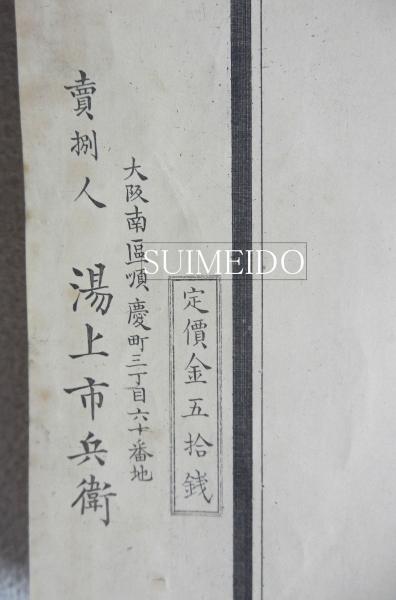 定價金五拾銭
大阪南區順慶町三丁目六十番地
賣捌人 湯上市兵衛
SUIMEIDO